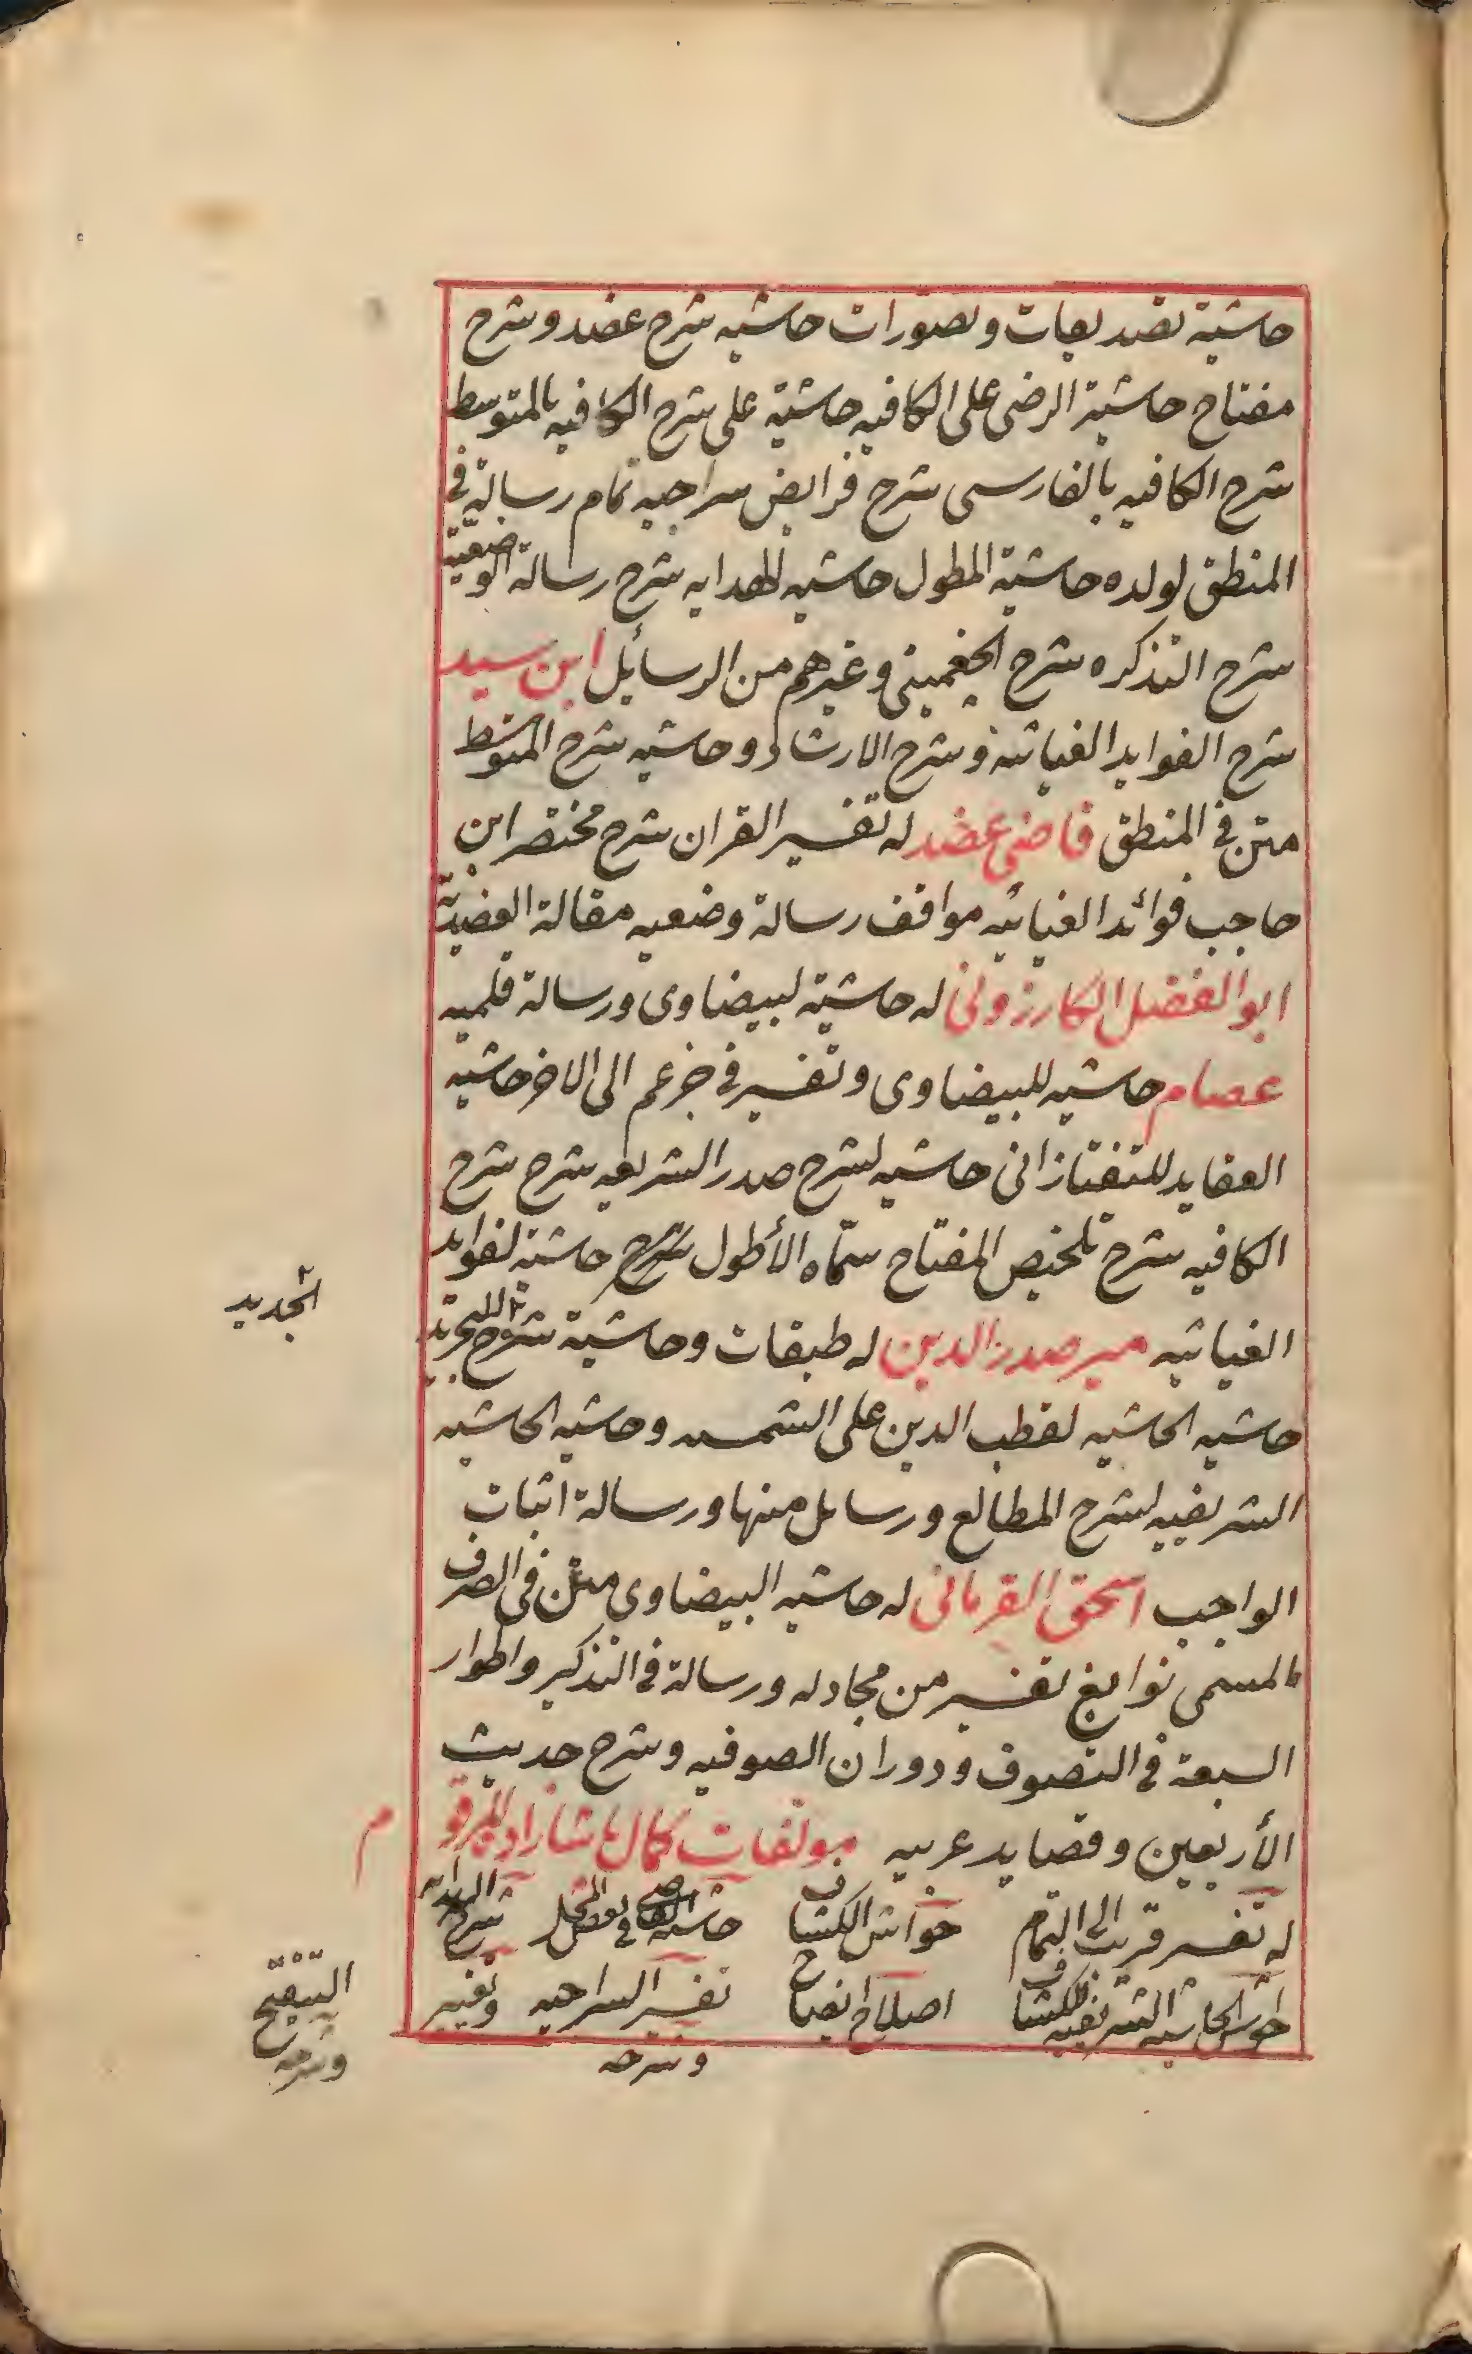 حاشية تصديقات وتصورات حاشيه شرح عضد وشرح
مفتاح حاشية الرضى على الكافيه حاشية على شرح الكافيه بالمتوسط
شرح الكافيه بالفارسى شرح فرايض سراجيه تمام رسالة فى
المنطق لولده حاشية المطول حاشيه لهدايه شرح رسالة الوضعية
شرح التذكره شرح الجغمينى وغيرهم من الرسائل ابن سيد
شرح الفوايد الغياثيه وشرح الارشاد وحاشيه شرح المتوسط
متن فى المنطق قاضى عضد له تفسير القران شرح مختصر ابن
حاجب فوائد الغياثيه مواقف رسالة وضعيه مقالة العضدية
ابو الفضل الكارزونى له حاشية لبيضاوى ورسالة قلميه
عصام حاشيه للبيضاوى وتفسير فى جز عم الى الاخر حاشيه
العقايد للتفتازانى حاشيه لشرح صدر الشريعه شرح شرح
الكافيه شرح تلخيص المفتاح سماه الأطول شرح حاشية لفوايد
الغياثيه مير صدر الدين له طبقات وحاشية شرح التجريد
الجديد
حاشيه الحاشيه لقطب الدين على الشمسه وحاشيه الحاشيه
الشريفيه لشرح المطالع ورسايل منها ورسالة اثبات
الواجب اسحق القرمانى له حاشيه البيضاوي متن فى الصرف
المسمى نوابغ تفسير من مجادله ورسالة فى التذكير واطوار
السبعة فى التصوف ودوران الصوفيه وشرح حديث
الأربعين وقصايد عربيه مولفات كمال پاشازاده المرقوم
له تفسير قريب الى التمام حواش الكشاف حاشية فى بعض المحل شرح الهداية
الحاشيه الشريفيه لكشاف اصلاح ايضاح تفسير السراجيه وتغيير
التنقيح
وشرحه
وشرحه